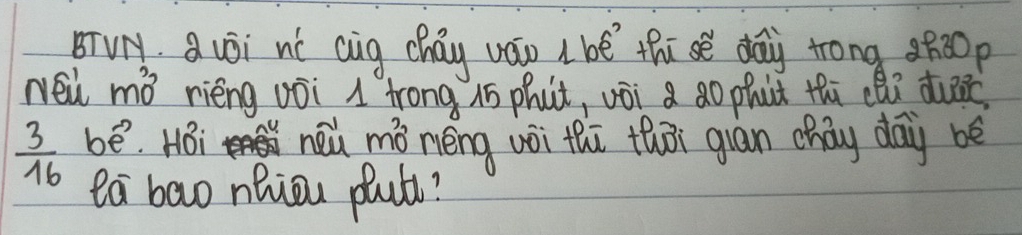 BTVN. 2 vòi nc cùg chảy vào 1 bể thì sẽ đầy trong 2h20p
Nếu mở riêng vòi 1 trong 15 phút, vòi 2 20 phút thì chỉ được
3/16 bể. Hỏi nếu mở riêng vòi thì thời gian chảy đầy bể
là bao nhiêu phút?